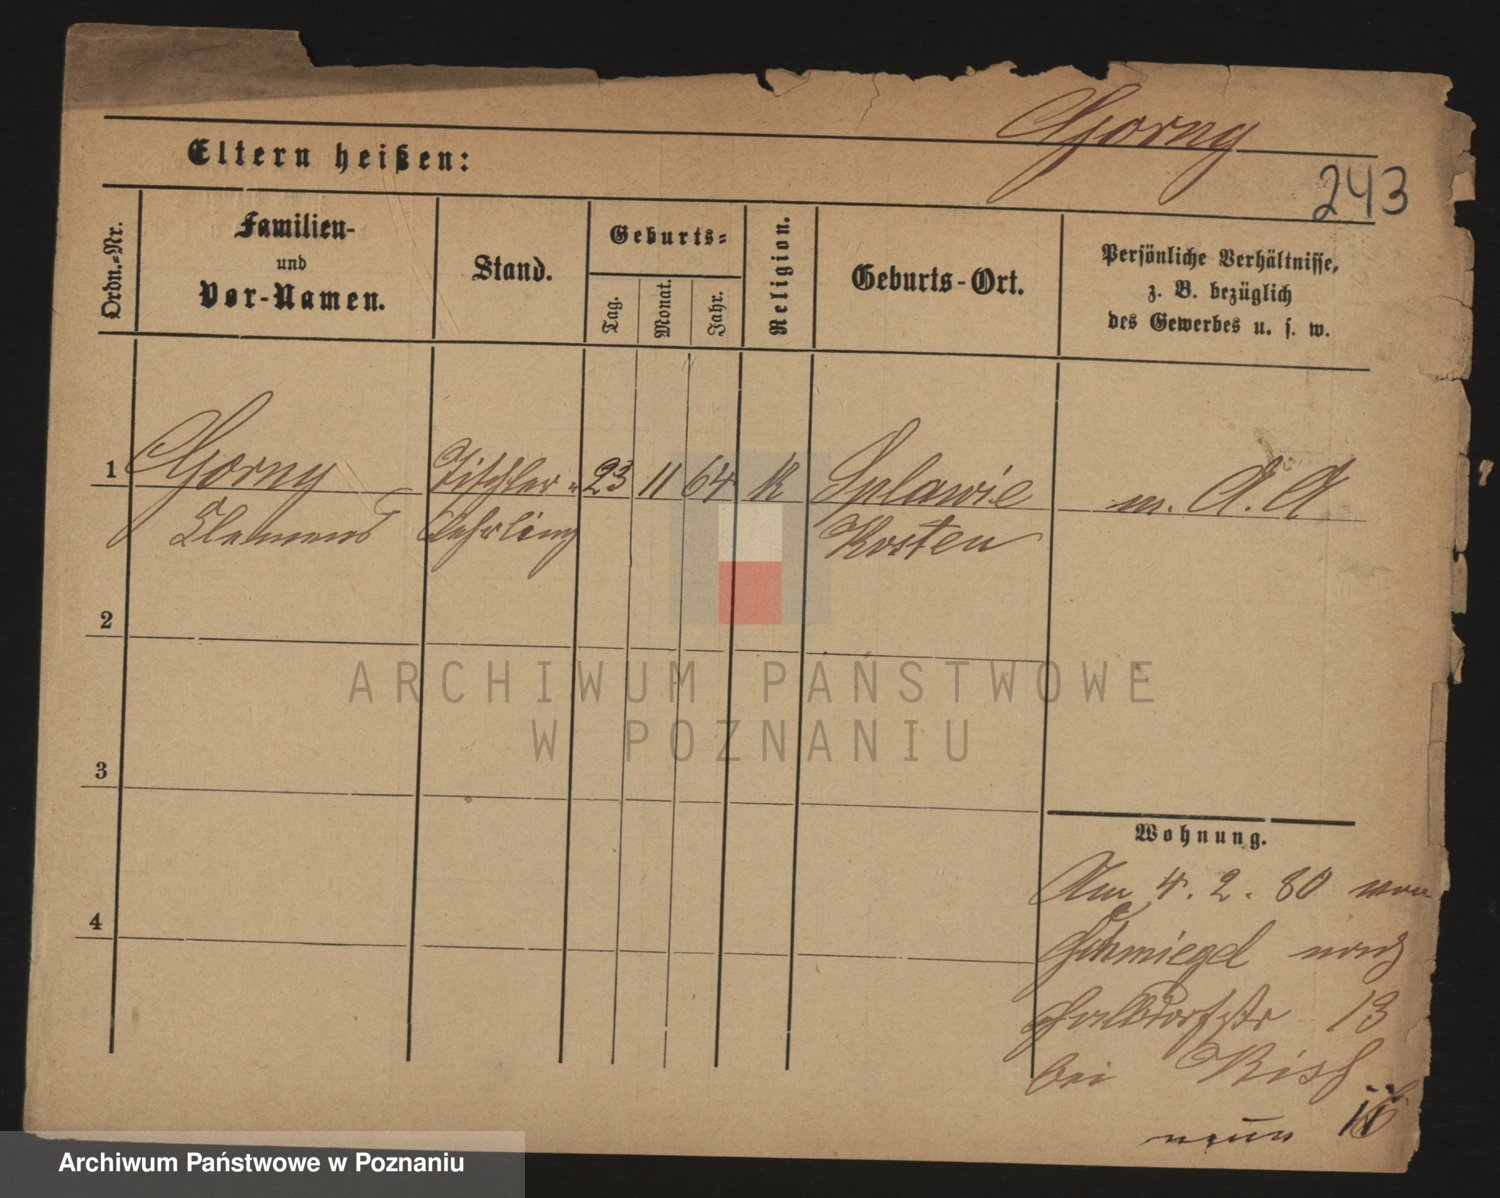 Gorny
Eltern heißen:
243
Ordn.-Nr.
Familien-
und
Vor-Namen.
Stand.
Geburts-
Tag.
Monat.
Jahr.
Religion.
Geburts-Ort.
Persönliche Verhältnisse,
z. B. bezüglich
des Gewerbes u. s. w.
1 Gorny Tischler- 23 11 64 K Splawie m. A. A
Clemens Lehrling Kosten
2
3
4
Wohnung.
Am 4. 2. 80 von
Schmiegel nach
Halbdorfstr 13
bei
neun
ARCHIWUM PAŃSTWOWE
W POZNANIU
Archiwum Państwowe w Poznaniu